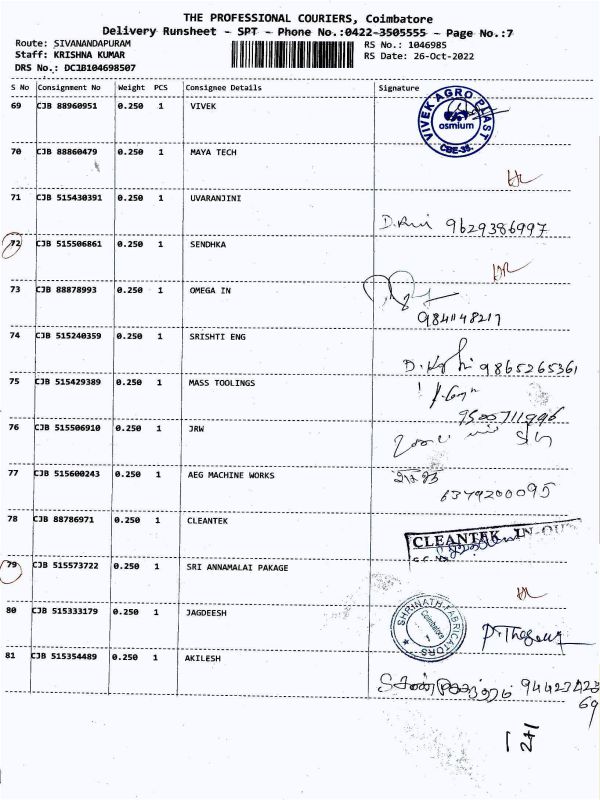 THE PROFESSIONAL COURIERS, Coimbatore
Delivery Runsheet - SPT - Phone No.:0422-3505555 - Page No.:7
Route: SIVANANDAPURAM RS No.: 1046985
Staff: KRISHNA KUMAR RS Date: 26-Oct-2022
DRS No.: DCJB104698507
S No Consignment No Weight PCS Consignee Details Signature
69 CJB 88960951 0.250 1 VIVEK
VIVEK AGRO PLAST
osmium
CBE-35.
70 CJB 88860479 0.250 1 MAYA TECH
71 CJB 515430391 0.250 1 UVARANJINI
9629386997
72 CJB 515506861 0.250 1 SENDHKA
73 CJB 88878993 0.250 1 OMEGA IN
9841148217
74 CJB 515240359 0.250 1 SRISHTI ENG
9865265361
75 CJB 515429389 0.250 1 MASS TOOLINGS
9500711996
76 CJB 515506910 0.250 1 JRW
77 CJB 515600243 0.250 1 AEG MACHINE WORKS
6379200095
78 CJB 88786971 0.250 1 CLEANTEK
CLEANTEK IN-OUT
79 CJB 515573722 0.250 1 SRI ANNAMALAI PAKAGE
80 CJB 515333179 0.250 1 JAGDEESH
SHRINATH-FABRICATORS
Coimbatore
81 CJB 515354489 0.250 1 AKILESH
94423423
69